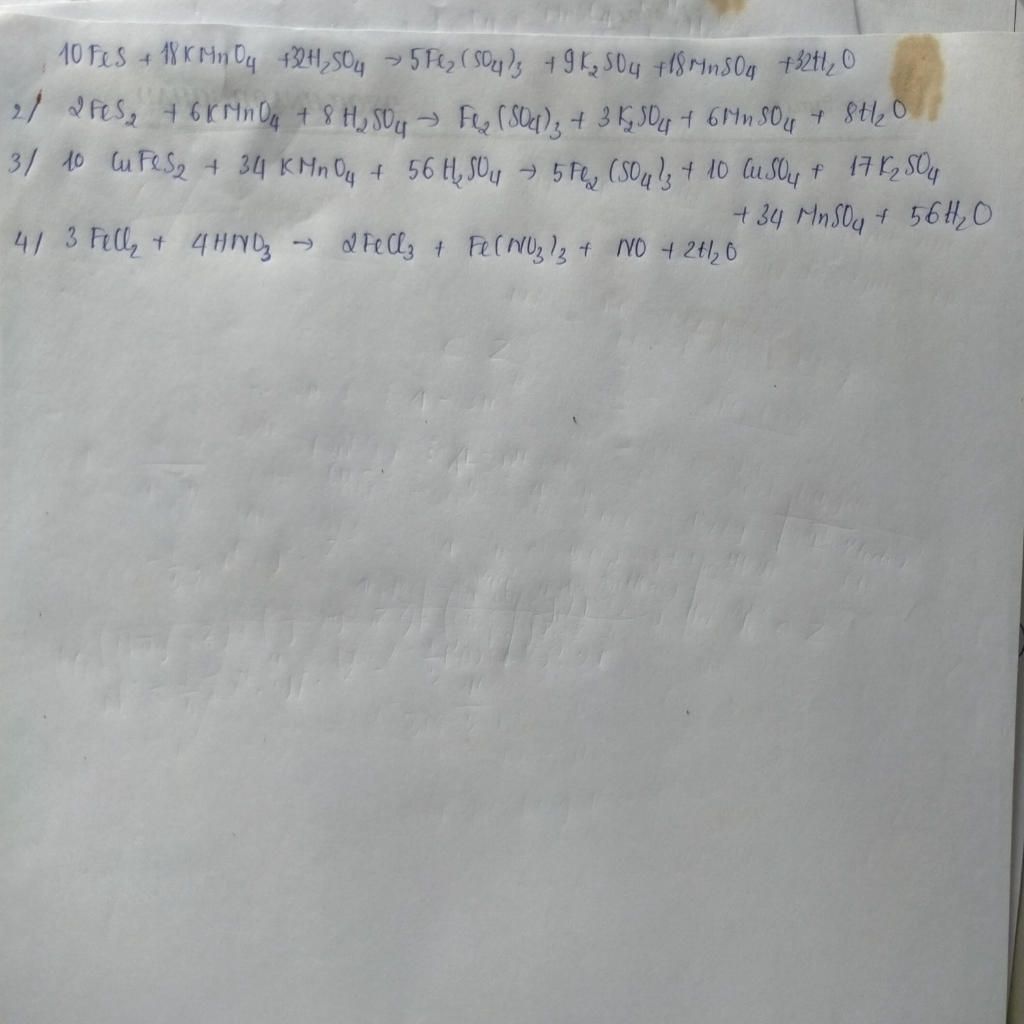 10 FeS + 18 KMnO4 + 32H2SO4 → 5Fe2(SO4)3 + 9K2SO4 + 18MnSO4 + 32H2O
2/ 2FeS2 + 6KMnO4 + 8H2SO4 → Fe2(SO4)3 + 3K2SO4 + 6MnSO4 + 8H2O
3/ 10 CuFeS2 + 34 KMnO4 + 56H2SO4 → 5Fe2(SO4)3 + 10 CuSO4 + 17K2SO4
+ 34 MnSO4 + 56H2O
4/ 3 FeCl2 + 4HNO3 → 2FeCl3 + Fe(NO3)3 + NO + 2H2O